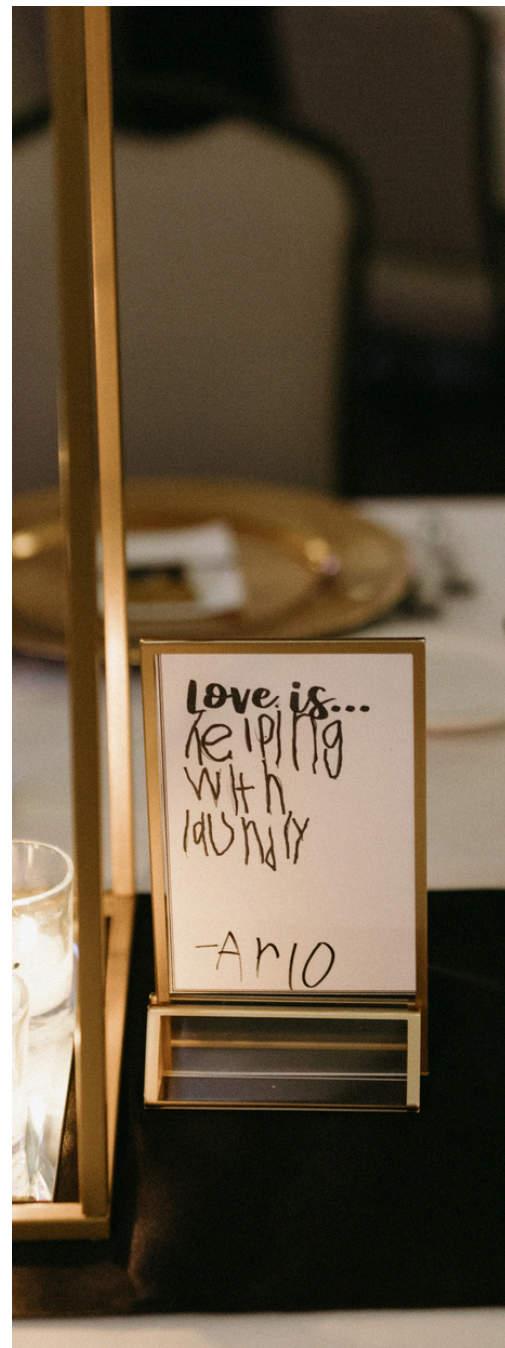 Love is...
helping
with
laundry
-Arlo